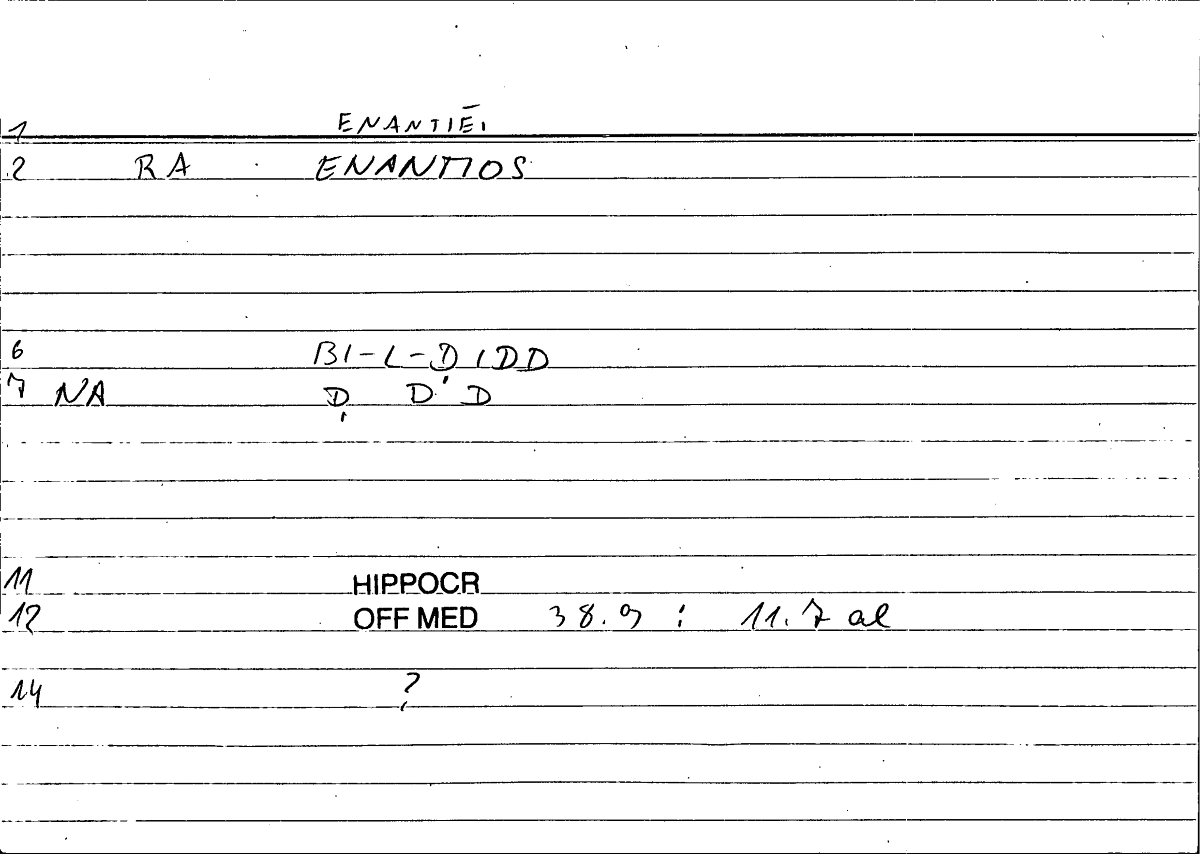 1 ENANTIĒ,
2 RA ENANTIOS
6 BI-L-DIDD
7 NA Ḍ D'D
11 HIPPOCR
12 OFF MED 38.9 : 11.7 al
14 ?